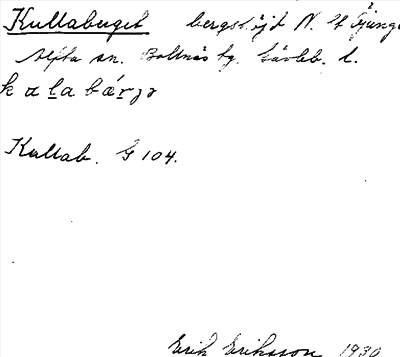 Kullaberget bergshöjd N. st
Alfta sn. Bollnäs tg. Gävleb. l.
kalabárjə
Kullab. G 104.
Erik Eriksson 1930